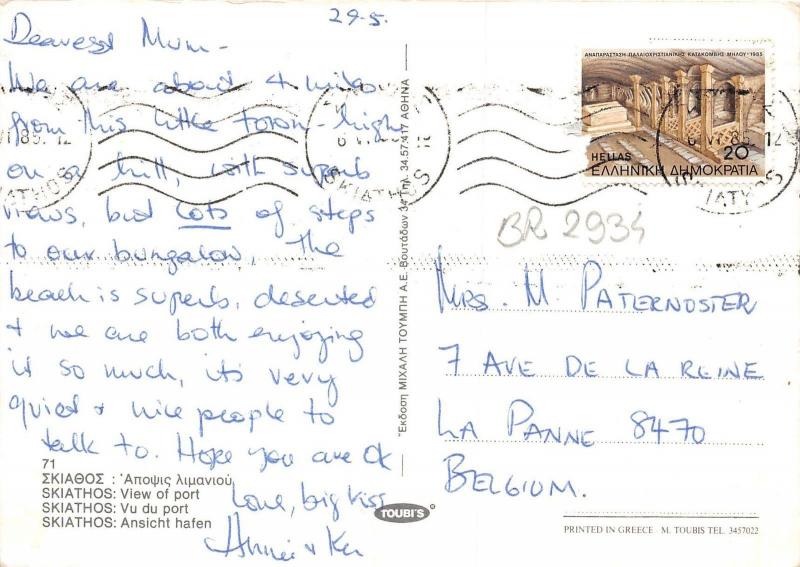 29-5.
Dearest Mum -
We are about 4 miles
from this little town - high
on a hill, with superb
views, but LOTS of steps
to our bungalow, The
beach is superb, deserted
+ we are both enjoying
it so much, its very
quiet + nice people to
talk to. Hope you are OK
Love, big kiss
71
ΣΚΙΑΘΟΣ : Ἄποψις λιμανιοῦ
SKIATHOS: View of port
SKIATHOS: Vu du port
SKIATHOS: Ansicht hafen
Ἔκδοση ΜΙΧΑΛΗ ΤΟΥΜΠΗ Α.Ε. Βουτάδων 34 Τηλ. 34.57.417 ΑΘΗΝΑ
TOUBI'S
ΑΝΑΠΑΡΑΣΤΑΣΗ-ΠΑΛΑΙΟΧΡΙΣΤΙΑΝΙΚΗΣ ΚΑΤΑΚΟΜΒΗΣ ΜΗΛΟΥ-1985
20
HELLAS
ΕΛΛΗΝΙΚΗ ΔΗΜΟΚΡΑΤΙΑ
SKIATHOS
BR 2934
MRS. M PATERNOSTER
7 AVE DE LA REINE
LA PANNE 8470
BELGIUM.
PRINTED IN GREECE M. TOUBIS TEL. 3457022